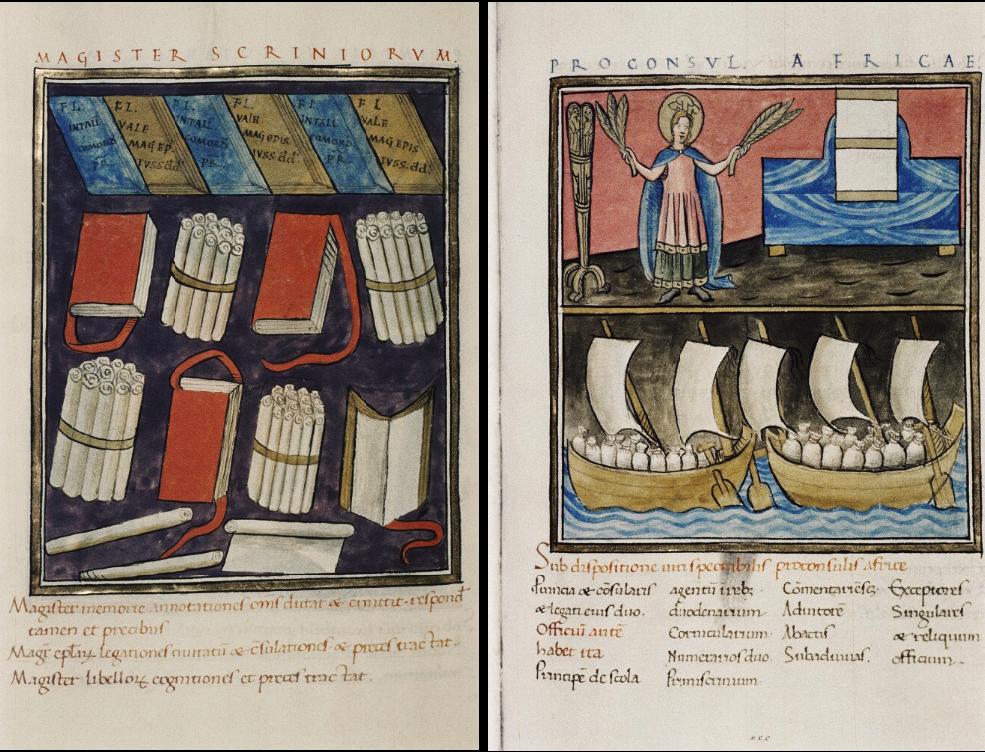 MAGISTER SCRINIORVM.
FL.
INTALL
COMORD
PR
FL.
VALE
MAGEP
IVSS·dd·
FL.
INTALL
COMORD
PR
FL.
VALH
MAGEPIS
IVSS·dd·
FL
INTALL
COMORD
PR
FL
VALE
MAGEPIS
IVSS·dd·
Magister memorie annotationes oms dictat & emittit· respond&
tamen et precibus
Magr̄ eplaꝝ legationes civitatū & c̄sulationes· & preces tractat·
Magister libelloꝝ cognitiones et preces tractat.
PROCONSVL. AFRICAE.
Sub dispositione viri spectabilis proconsulis africe
& legati eius duo.
Officiū autē
habet ita
Principē de scola
ducenarium
Cornicularium
Numerarios duo·
Primiscrinium
Adiutorē
Abactis
Subadiuvas.
Exceptores
Singulares
& reliquum
officium·